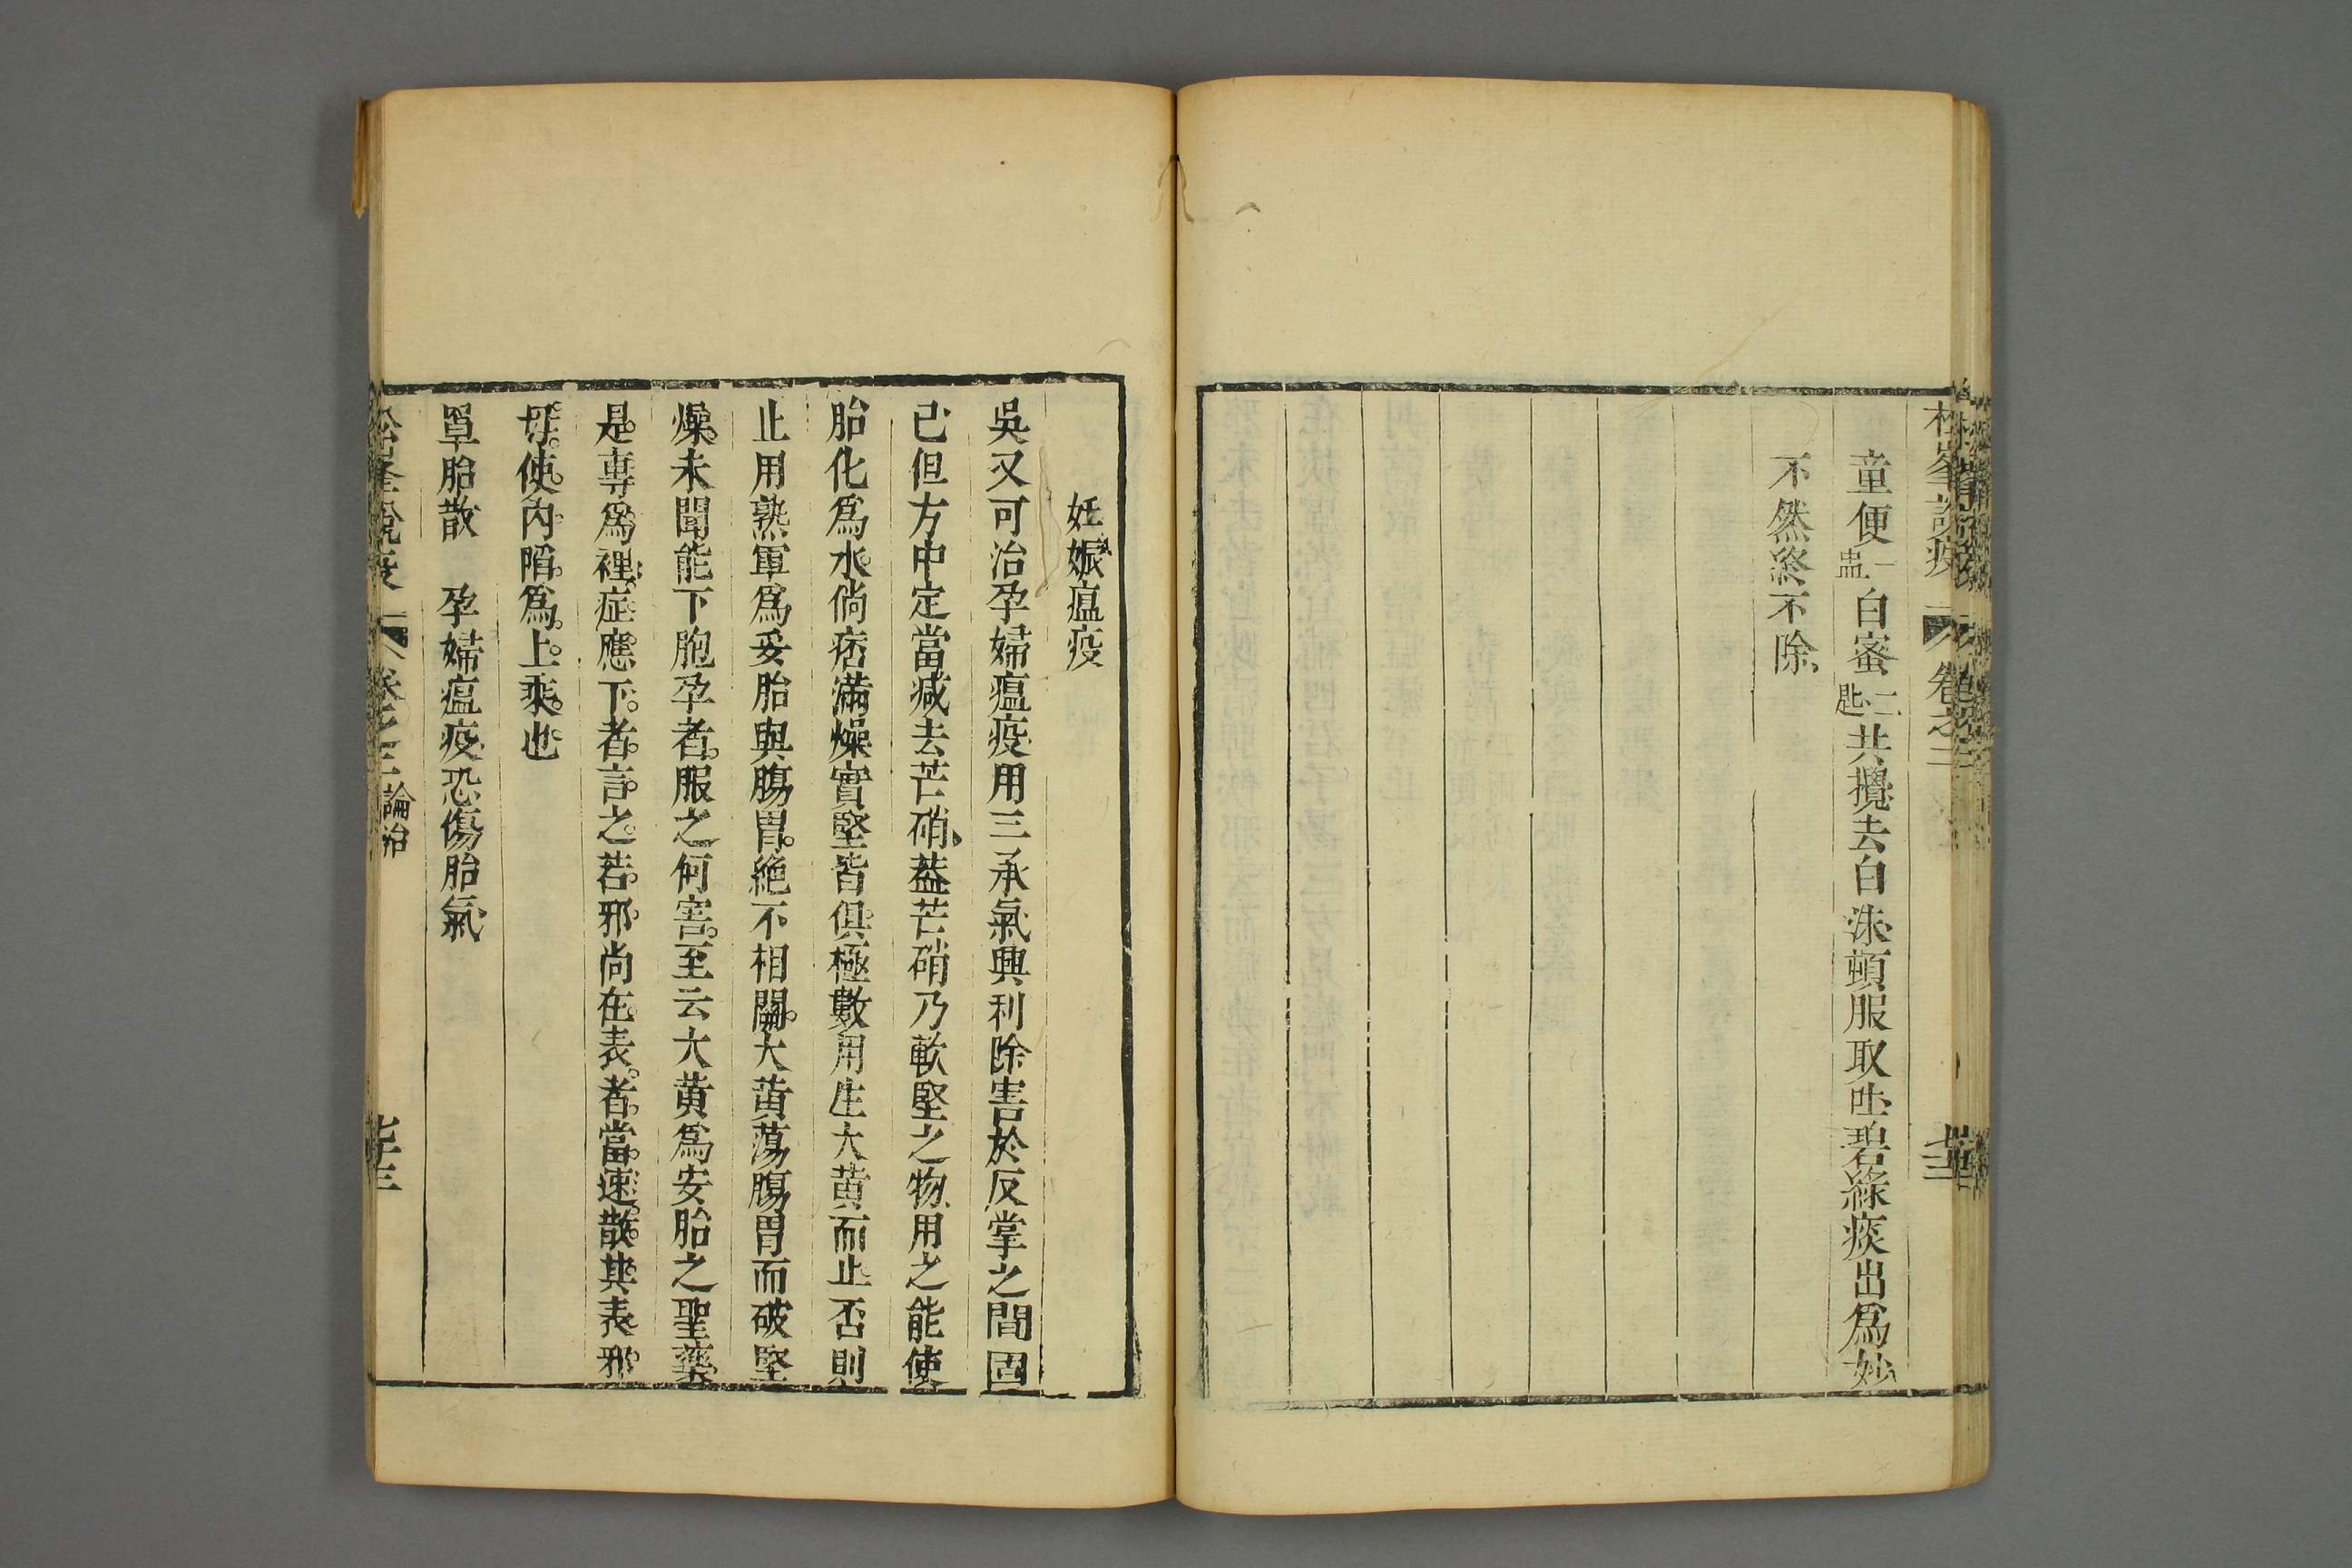 童便一盅白蜜二匙共攪去白沫頓服取吐碧綠痰出爲妙
不然終不除
妊娠瘟疫
吳又可治孕婦瘟疫用三承氣興利除害於反掌之間固
已但方中定當減去芒硝蓋芒硝乃軟堅之物用之能使
胎化爲水倘痞滿燥實堅皆俱極數用生大黃而止否則
止用熟軍爲妥胎與腸胃絕不相關大黃蕩腸胃而破堅
燥未聞能下胞孕者服之何害至云大黃爲安胎之聖藥
是專爲裡症應下者言之若邪尚在表者當速散其表邪
毋使內陷爲上乘也
罩胎散　孕婦瘟疫恐傷胎氣
松峯說疫　卷之三　論治